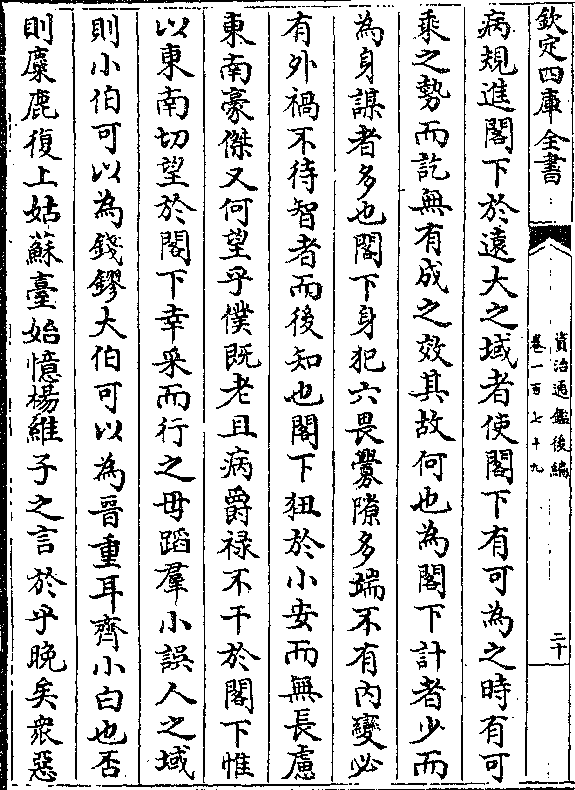 欽定四庫全書
資治通鑑後編
卷一百七十九
二十
病規進閣下於遠大之域者使閣下有可為之時有可
乘之勢而訖無有成之效其故何也為閣下計者少而
為身謀者多也閣下身犯六畏釁隙多端不有內變必
有外禍不待智者而後知也閣下狃於小安而無長慮
東南豪傑又何望乎僕既老且病爵祿不干於閣下惟
以東南切望於閣下幸采而行之毋蹈羣小誤人之域
則小伯可以為錢鏐大伯可以為晉重耳齊小白也否
則麋鹿復上姑蘇臺始憶楊維子之言於乎晚矣衆惡